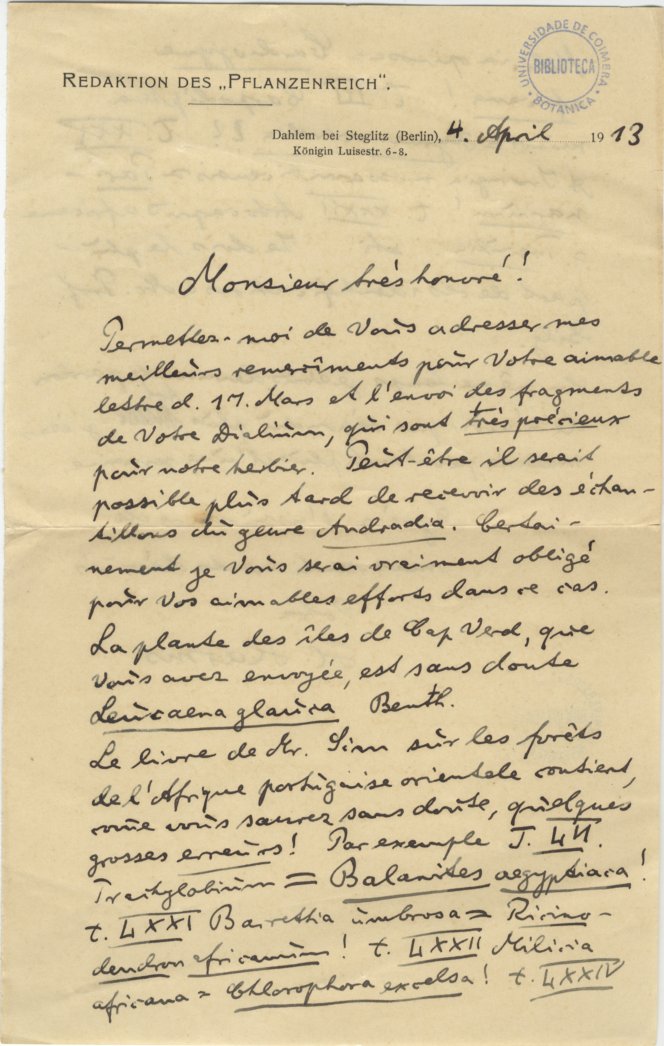 REDAKTION DES „PFLANZENREICH“.
UNIVERSIDADE DE COIMBRA
BIBLIOTECA
BOTANICA
Dahlem bei Steglitz (Berlin), 4. April 1913
Königin Luisestr. 6-8.
Monsieur très honoré!!
Permettez-moi de Vous adresser mes
meilleurs remercîments pour Votre aimable
lettre d. 17. Mars et l'envoi des fragments
de Votre Dialium, qui sont très précieux
pour notre herbier. Peut-être il serait
possible plus tard de recevoir des échan-
tillons du genre Andradia. Certai-
nement je Vous serai vraiment obligé
pour Vos aimables efforts dans ce cas.
La plante des îles de Cap Verd, que
Vous avez envoyée, est sans doute
Leucaena glauca Benth.
Le livre de Mr. Sim sur les forêts
de l'Afrique portugaise orientele contient,
come vous saurez sans doute, quelques
grosses erreurs! Par exemple T.
Trachylobium = Balanites aegyptiaca!
t. LXXI Bairettia umbrosa = Ricino-
dendron africanum! t. LXXII Milicia
africana = Chlorophora excelsa! t. LXXIV